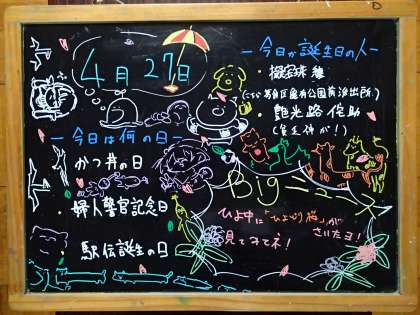 4月27日
―今日が誕生日の人―
・擬宝珠 纏
(こち亀 葛飾区亀有公園前派出所)
・艶光路 侘助
(貧乏神が!)
―今日は何の日―
・かつ丼の日
・婦人警官記念日
・駅伝誕生の日
Bigニュース
ひよ中に「ひよどり桜」が
さいたヨ!
見てみてネ!